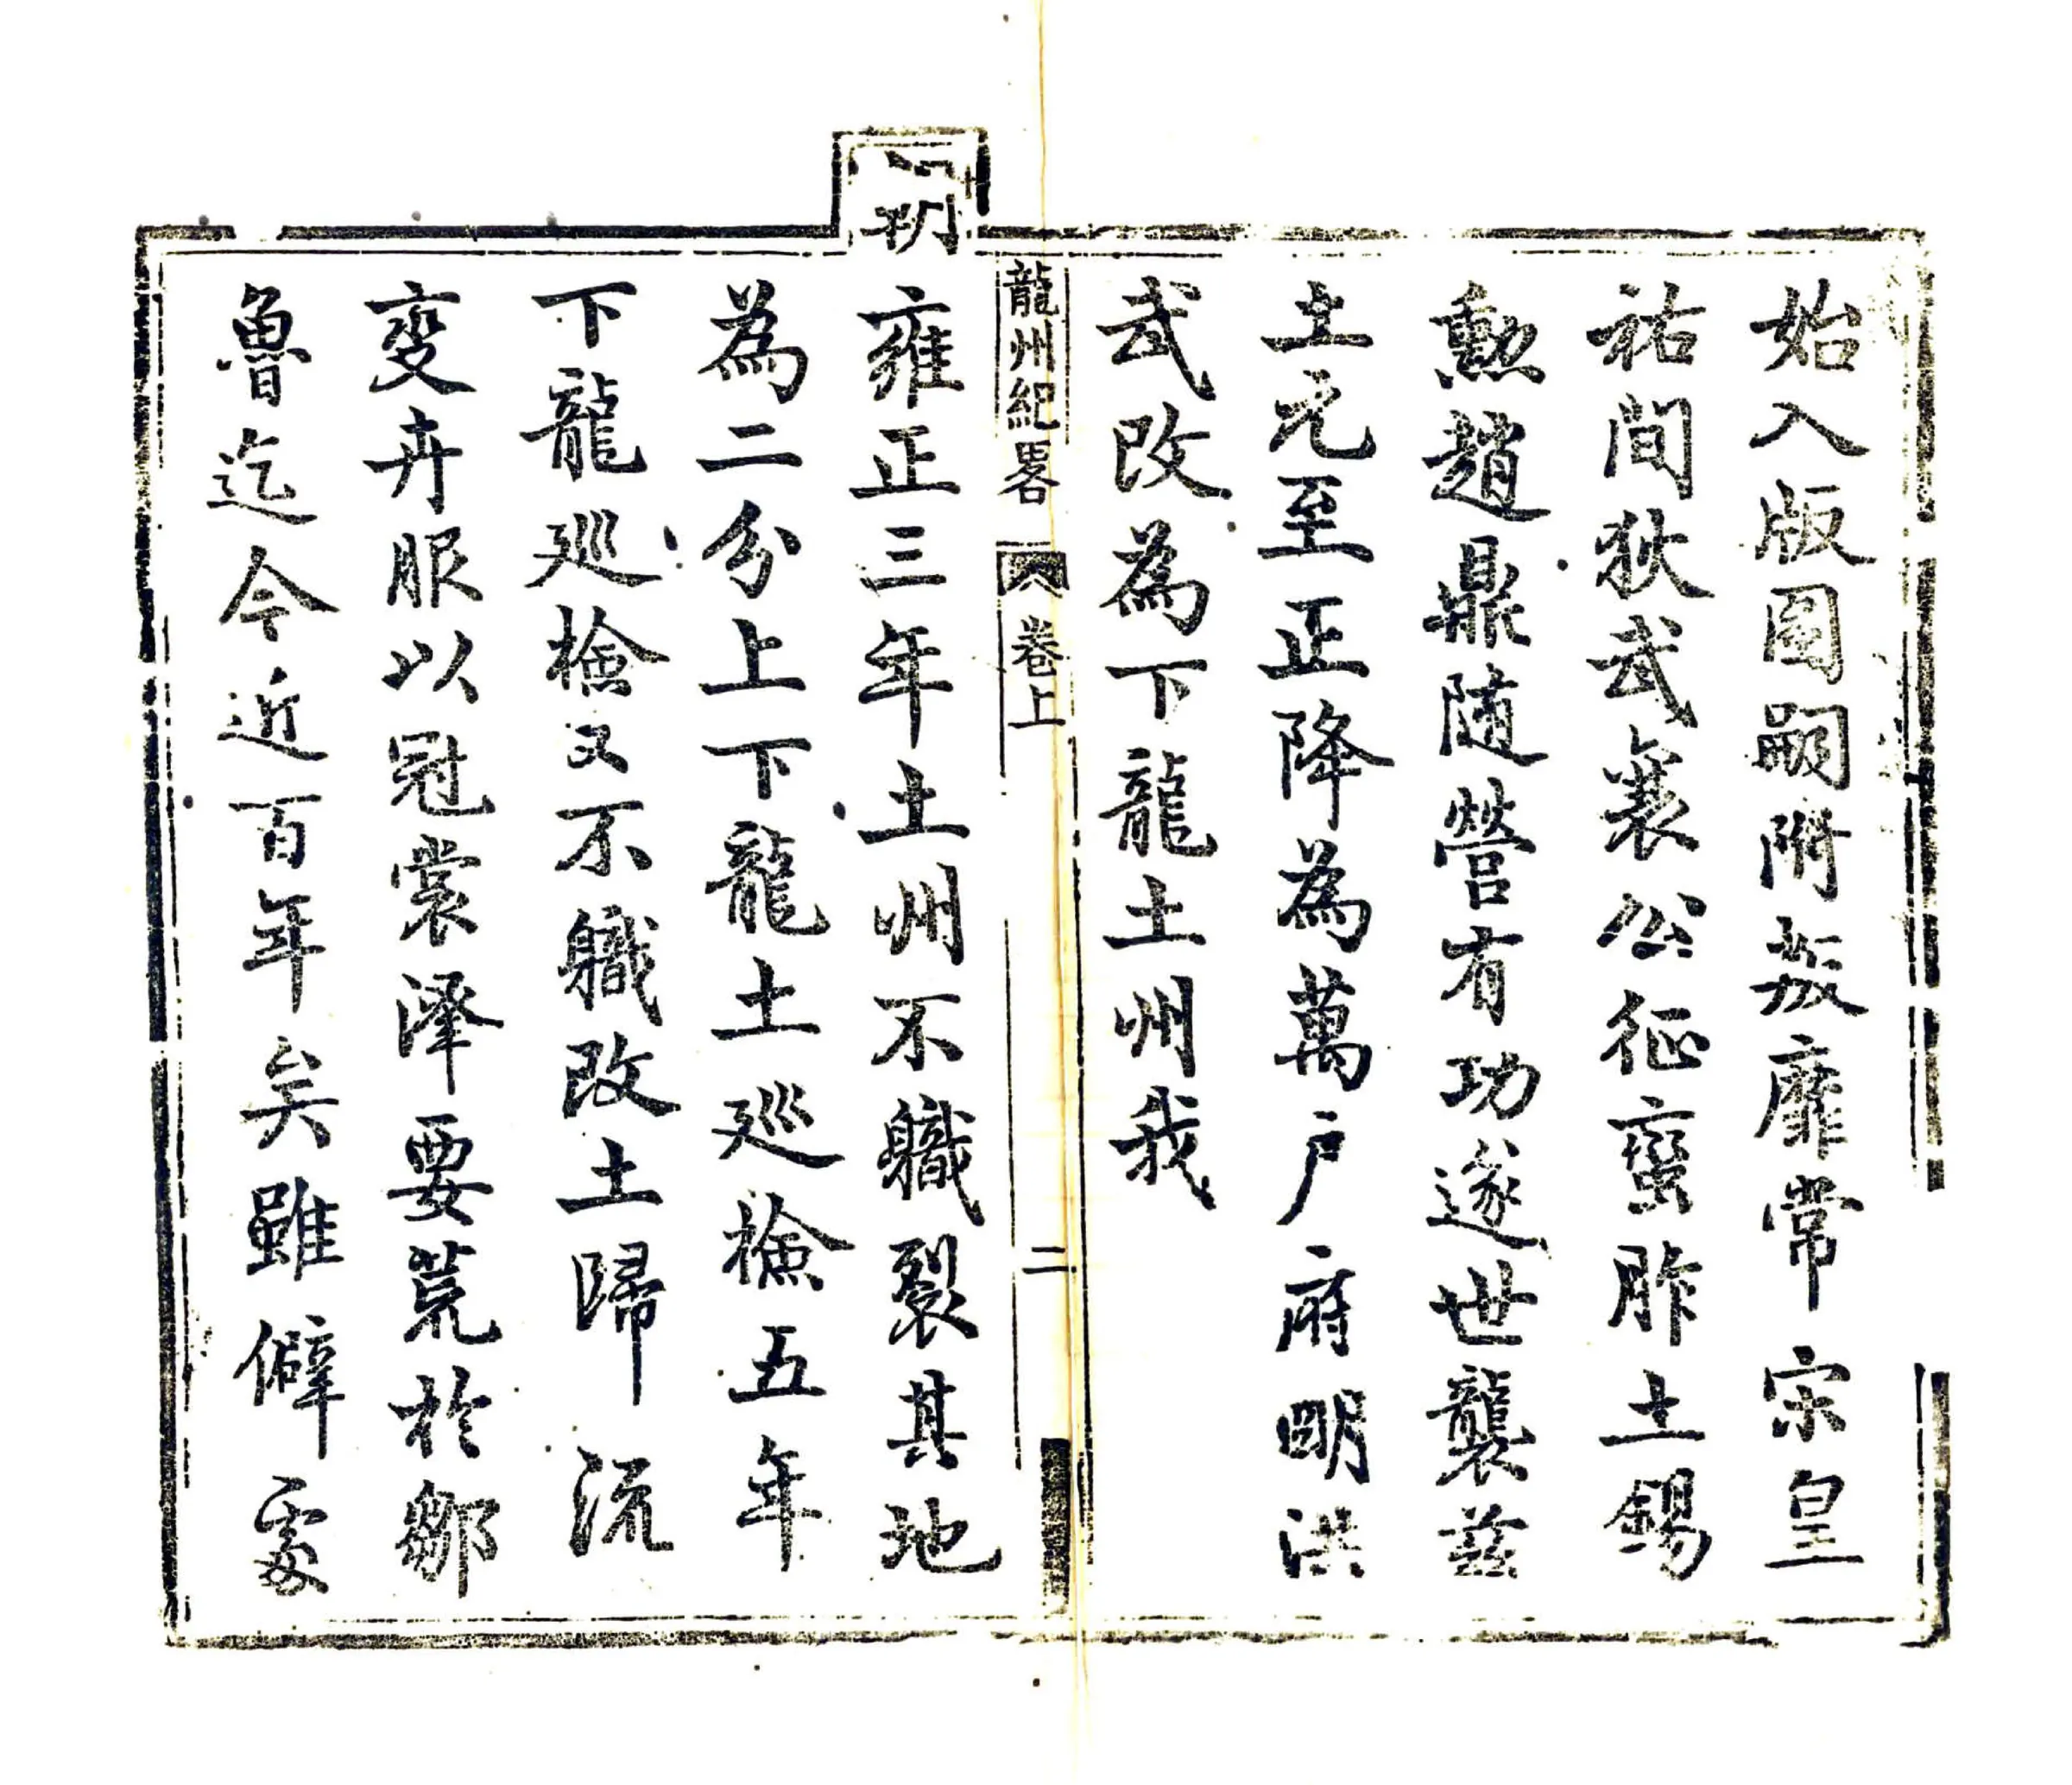 始入版圖嗣附叛靡常宋皇
祐間狄武襄公征蠻胙土錫
勲趙鼎随營有功遂世襲兹
土元至正降為萬户府明洪
武改為下龍土州我
龍州紀畧 卷上 二
朝
雍正三年土州不職裂其地
為二分上下龍土巡檢五年
下龍巡檢又不職改土歸流
变卉服以冠裳澤要荒於鄒
魯迄今近百年矣雖僻處